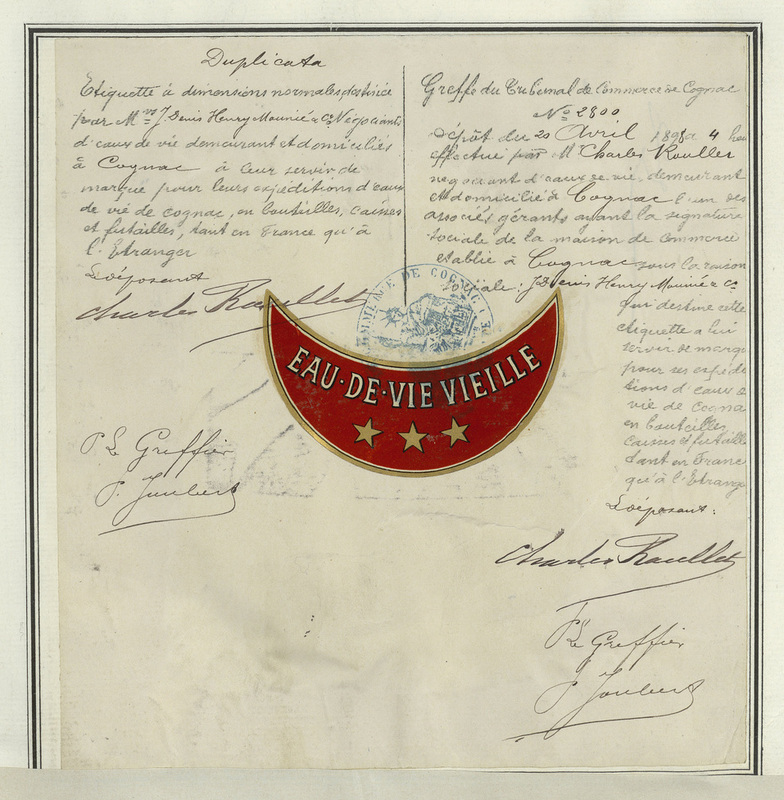 Duplicata
Etiquette à dimensions normales, destinée
par M.rs J. Denis Henry Mounié & Co Négociants
d'eaux de vie demeurant et domiciliés
à Cognac à leur servir de
marque pour leurs expéditions d'eaux
de vie de cognac, en bouteilles, caisses
et futailles, tant en France qu'à
l'Etranger
Le déposant
Charles Roullet
P. Le Greffier
P. Joubert
Greffe du Tribunal de Commerce de Cognac
No 2800
Dépôt du 20 Avril 4 heu
effectué par M Charles Roullet
négociant d'eaux de vie demeurant
et domicilié à Cognac l'un des
associés gérants ayant la signature
sociale de la maison de commerce
établie à Cognac sous la raison
sociale: J. Denis Henry Mounié & Co
qui destine cette
étiquette à lui
servir de marque
pour ses expédi
tions d'eaux de
vie de cognac
en bouteilles,
caisses et futailles
tant en France
qu'à l'Etrange
Le déposant:
Charles Roullet
P. Le Greffier
P. Joubert
COMMERCE DE COGNAC
EAU·DE·VIE VIEILLE